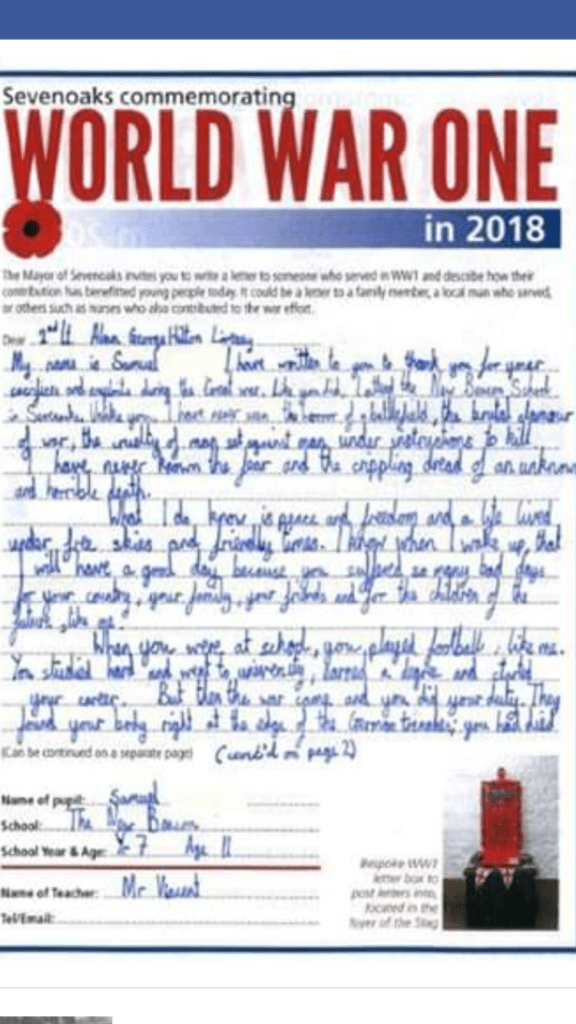 Sevenoaks commemorating
WORLD WAR ONE
in 2018
The Mayor of Sevenoaks invites you to write a letter to someone who served in WW1 and describe how their
contribution has benefitted young people today. It could be a letter to a family member, a local man who served,
or others such as nurses who also contributed to the war effort.
Dear 2nd Lt Alan George Hilton Lindsay
My name is Samuel I have written to you to thank you for your
sacrifices and exploits during the Great war. Like you did, I attend the New Beacon School
in Sevenoaks. Unlike you, I have never seen the horror of a battlefield, the brutal clamour
of war, the cruelty of man set against man under instructions to kill.
I have never known the fear and the crippling dread of an unknown
and horrible death.
What I do know is peace and freedom and a life lived
under free skies and friendly times. I know when I wake up, that
I will have a good day because you suffered so many bad days
for your country, your family, your friends and for the children of the
future, like me.
When you were at school, you played football, like me.
You studied hard and went to university, earned a degree and started
your career. But then the war came and you did your duty. They
found your body right at the edge of the German trenches; you had died
(Can be continued on a separate page) (cont'd on page 2)
Name of pupil: Samuel
School: The New Beacon
School Year & Age: Yr 7 Age 11
Name of Teacher: Mr Vincent
Tel/Email:
Bespoke WW1
letter box to
post letters into,
located in the
foyer of the Stag